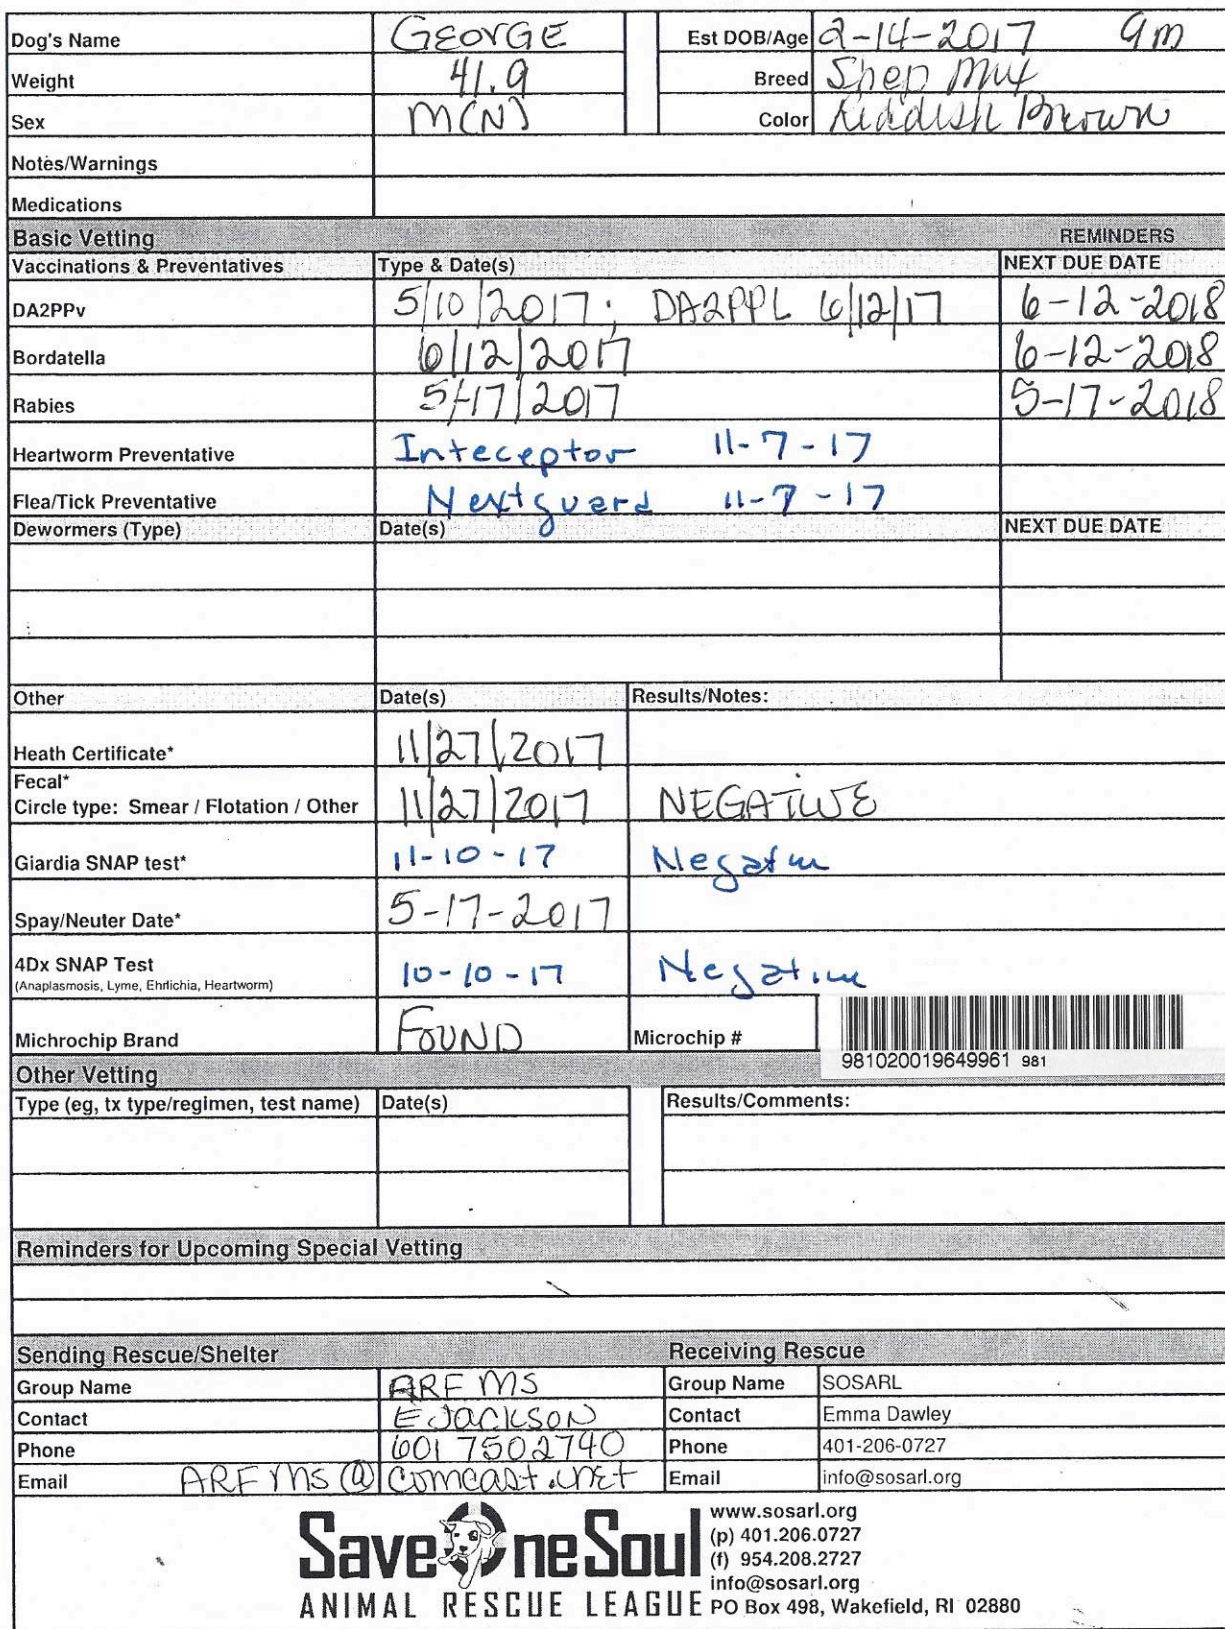 Dog's Name GEOrGE Est DOB/Age 2-14-2017 9m
Weight 41.9 Breed Shep Mix
Sex M(N) Color Reddish Brown
Notes/Warnings
Medications
Basic Vetting REMINDERS
Vaccinations & Preventatives Type & Date(s) NEXT DUE DATE
DA2PPv 5/10/2017; DA2PPL 6/12/17 6-12-2018
Bordatella 6/12/2017 6-12-2018
Rabies 5/17/2017 5-17-2018
Heartworm Preventative Inteceptor 11-7-17
Flea/Tick Preventative Nextguard 11-7-17
Dewormers (Type) Date(s) NEXT DUE DATE
Other Date(s) Results/Notes:
Heath Certificate* 11/27/2017
Fecal*
Circle type: Smear / Flotation / Other 11/27/2017 NEGATIVE
Giardia SNAP test* 11-10-17 Negative
Spay/Neuter Date* 5-17-2017
4Dx SNAP Test 10-10-17 Negative
(Anaplasmosis, Lyme, Ehrlichia, Heartworm)
Michrochip Brand FOUND Microchip #
981020019649961 981
Other Vetting
Type (eg, tx type/regimen, test name) Date(s) Results/Comments:
Reminders for Upcoming Special Vetting
Sending Rescue/Shelter Receiving Rescue
Group Name ARF MS Group Name SOSARL
Contact E Jackson Contact Emma Dawley
Phone 601 7502740 Phone 401-206-0727
Email ARFMS@comcast.net Email info@sosarl.org
Save One Soul
ANIMAL RESCUE LEAGUE
www.sosarl.org
(p) 401.206.0727
(f) 954.208.2727
info@sosarl.org
PO Box 498, Wakefield, RI 02880